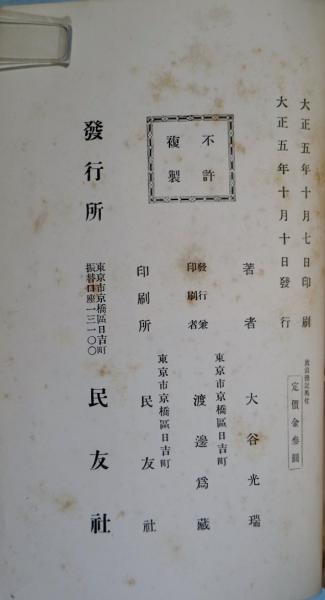 大正五年十月七日印刷
大正五年十月十日發行
放浪漫記奧付
定價金參圓
不許
複製
著者 大谷光瑞
東京市京橋區日吉町
發行兼
印刷者 渡邊爲藏
東京市京橋區日吉町
印刷所 民友社
發行所 民友社
東京市京橋區日吉町
振替口座一三一〇〇